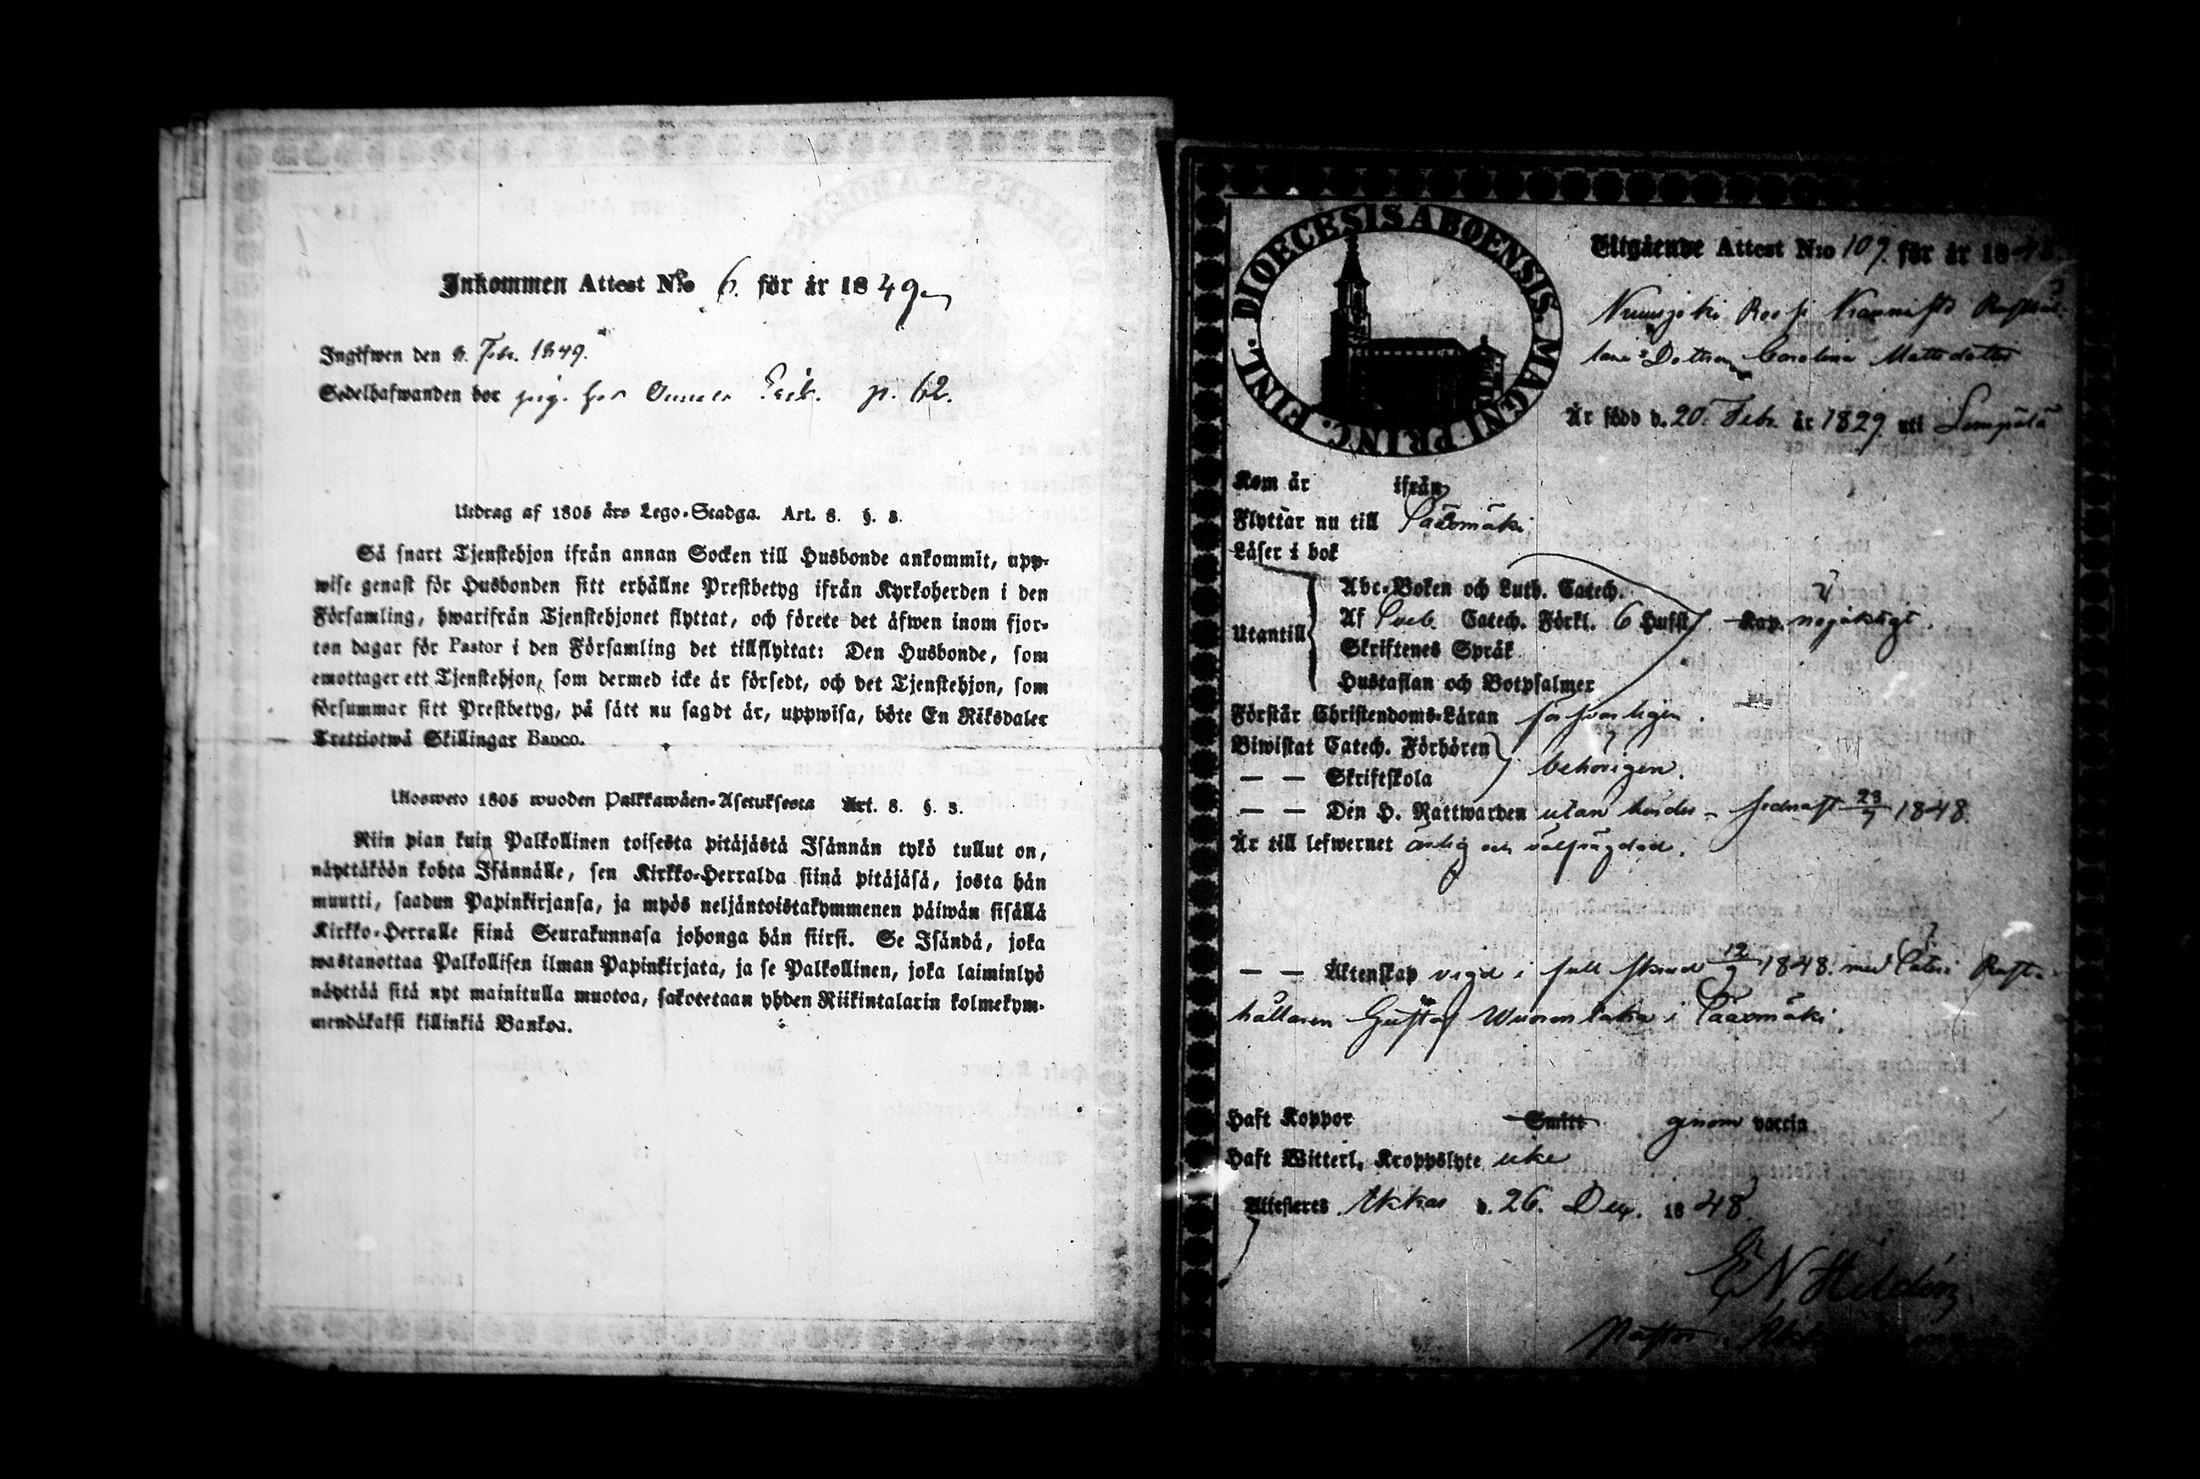 Inkommen Attest N:o 6. för år 1849
Ingifwen den 6. Febr. 1849.
Sedelhafwanden bor pig. hos p. 62.
Utdrag af 1805 års Lego-Stadga. Art. 8. §. 3.
Så snart Tjenstehjon ifrån annan Socken till Husbonde ankommit, upp-
wise genast för Husbonden sitt erhållne Prestbetyg ifrån Kyrkoherden i den
Församling, hwarifrån Tjenstehjonet flyttat, och förete det äfwen inom fjor-
ton dagar för Pastor i den Församling det tillflyttat: Den Husbonde, som
emottager ett Tjenstehjon, som dermed icke är försedt, och det Tjenstehjon, som
försummar sitt Prestbetyg, på sätt nu sagdt är, uppwisa, böte En Riksdaler
Trettiotwå Skillingar Banco.
Ulosweto 1805 wuoden Palkkawäen-Asetuksesta Art. 8. §. 3.
Niin pian kuin Palkollinen toisesta pitäjästä Isännän tykö tullut on,
näyttäköön kohta Isännälle, sen Kirkko-Herralda siinä pitäjäsä, josta hän
muutti, saadun Papinkirjansa, ja myös neljäntoistakymmenen päiwän sisällä
Kirkko-Herralle siinä Seurakunnasa johonga hän siirsi. Se Isändä, joka
wastanottaa Palkollisen ilman Papinkirjata, ja se Palkollinen, joka laiminlyö
näyttää sitä nyt mainitulla muotoa, sakotetaan yhden Riikintalarin kolmekym-
mendäkaksi killinkiä Bankoa.
DIOECESIS ABOENSIS. MAGNI PRINC. FINL.
Utgående Attest N:o 109. för år 1848.
Dottren Carolina Mattsdotter
Är född d. 20 Febr. år 1829 uti Lempälä
Kom år ifrån
Flyttar nu till Sääxmäki
Läser i bok
Utantill
Abc-Boken och Luth. Catech.
Af Sveb. Catech. Förkl. 6 Hufst. Kap. nöjaktigt.
Skriftenes Språk
Hustaflan och Botpsalmer
Förstår Christendoms-Läran försvarligen.
Biwistat Catech. Förhören
— — Skriftskola behörigen.
— — Den H. Nattwarden utan hinder - sednast 23/7 1848.
Är till lefwernet ärlig och välfrägdad.
— — Äktenskap vigd i full stånd 12/9 1848. med Rust-
hållaren Gustaf i Sääxmäki.
Haft Koppor Smitt genom vaccin
Haft Witterl. Kroppslyte icke
Attesteras Akkas d. 26. Dec. 1848.
E N Heldén
Pastor